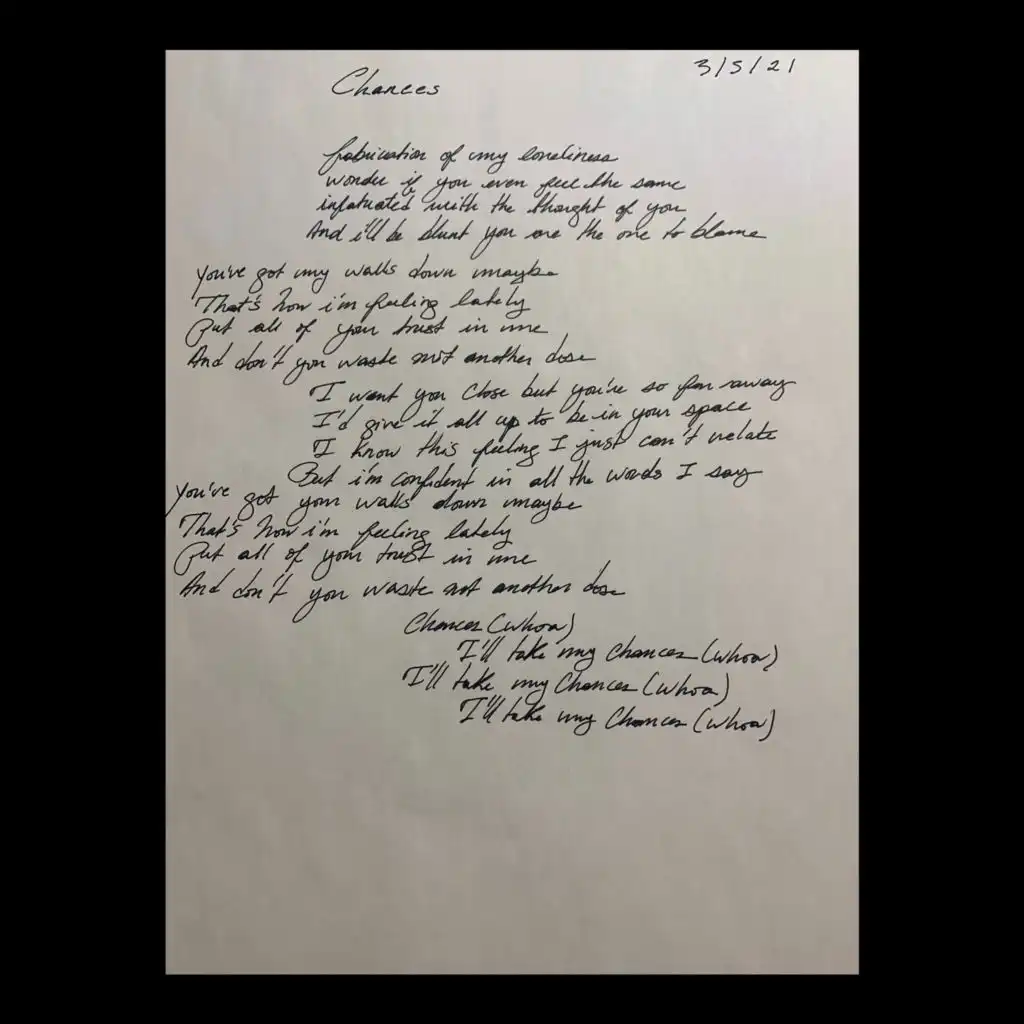 3/5/21
Chances
fabrication of my loneliness
wonder if you even feel the same
infatuated with the thought of you
And i'll be blunt you are the one to blame
You've got my walls down maybe
That's how i'm feeling lately
Put all of your trust in me
And don't you waste not another dose
I want you close but you're so far away
I'd give it all up to be in your space
I know this feeling I just can't relate
But i'm confident in all the words I say
You've got your walls down maybe
That's how i'm feeling lately
Put all of your trust in me
And don't you waste not another dose
Chances (whoa)
I'll take my Chances (whoa)
I'll take my Chances (whoa)
I'll take my Chances (whoa)